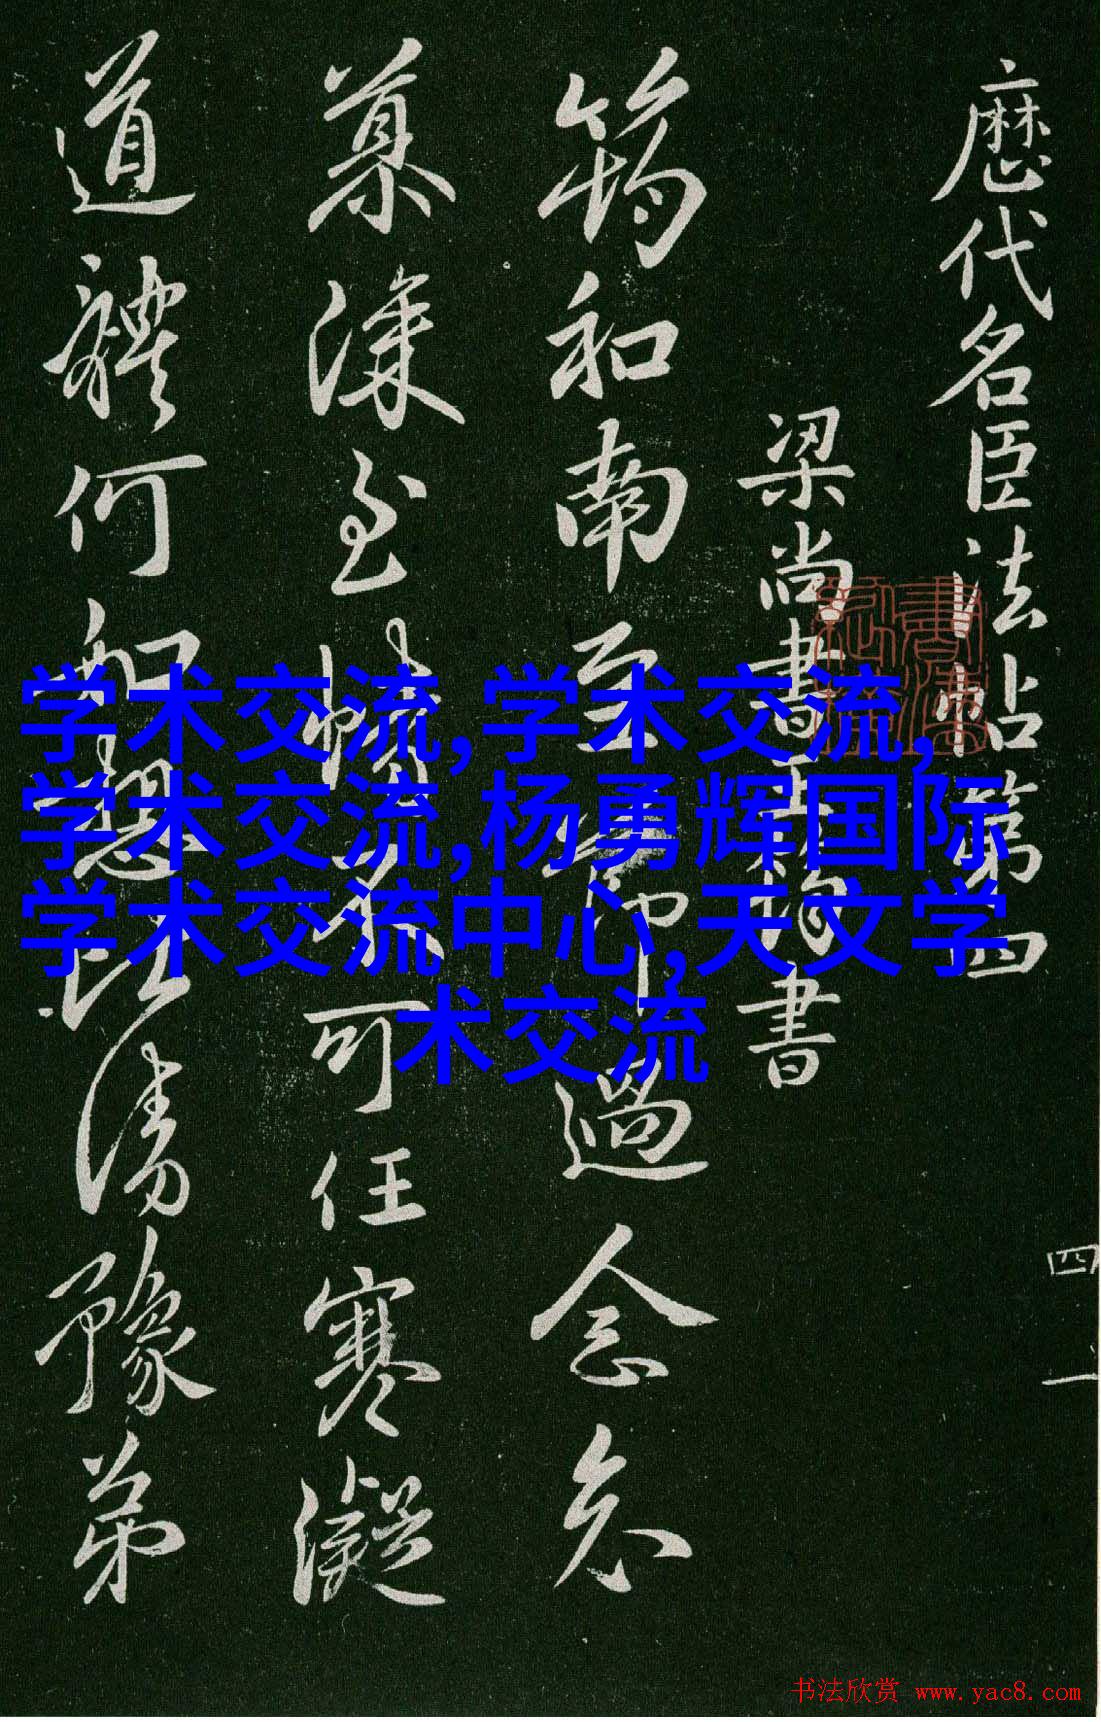 歷代名臣法帖第四
梁尚書王筠書
筠和南至節過念
慕深至情不可任寒凝
道體何如想比清豫弟
四
一
学术交流,学术交流,
学术交流,杨勇辉国际
学术交流中心,天文学
术交流
书法欣赏 www.yac8.com